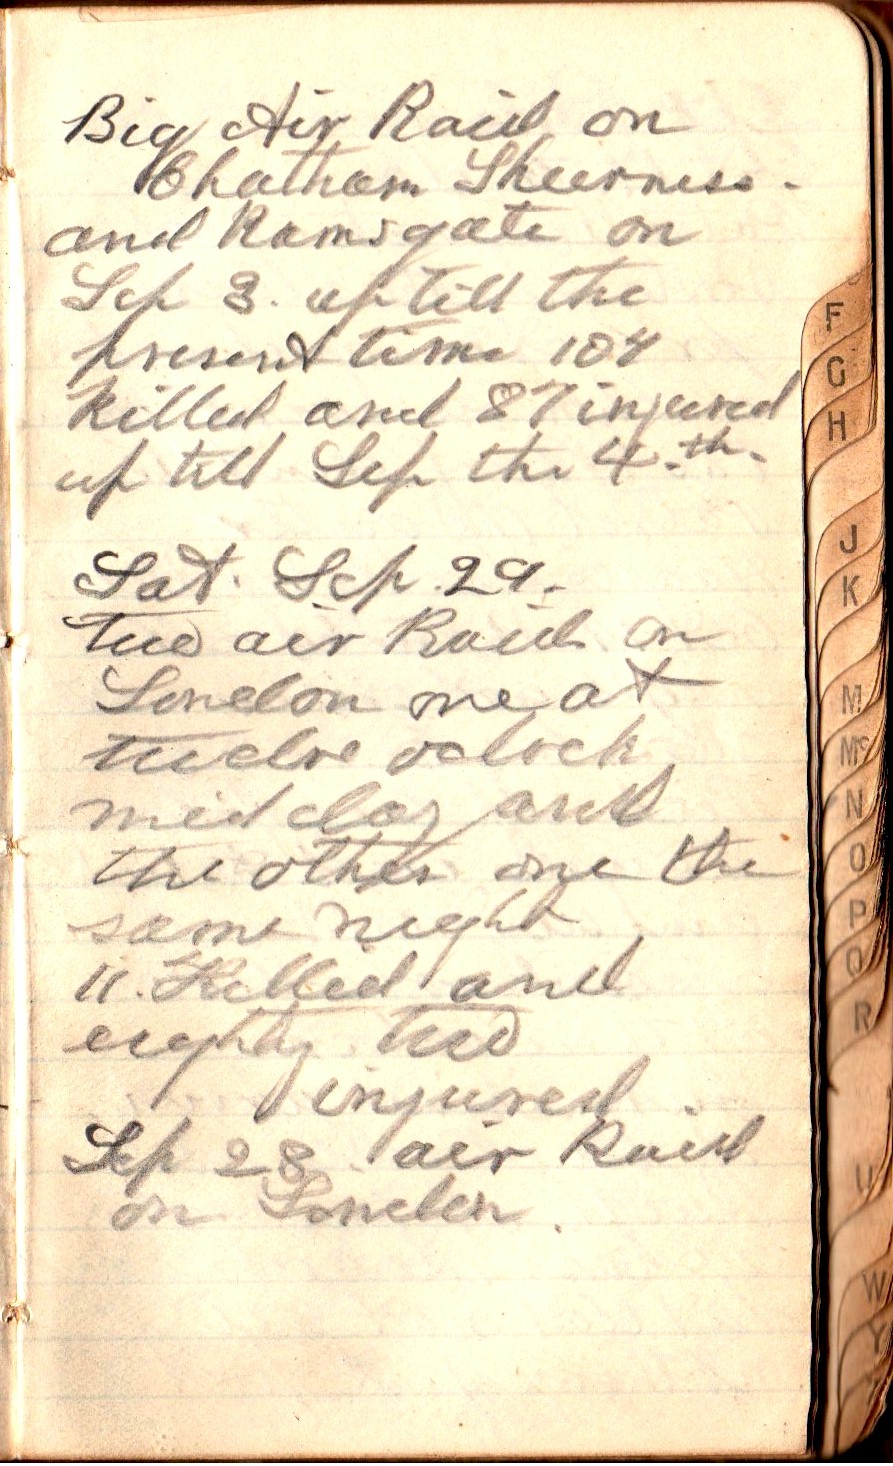 Big Air Raid on
Chatham Sheerness.
and Ramsgate on
Sep 3. up till the
present time 108
killed and 87 injured
up till Sep the 4.th.
Sat. Sep. 29.
two air Raid on
London one at
twelve oclock
mid day and
the other one the
same night
11. Killed and
eighty two
injured
Sep 28. air Raid
on London.
F
G
H
J
K
M
Mc
N
O
P
Q
R
U
W
Y